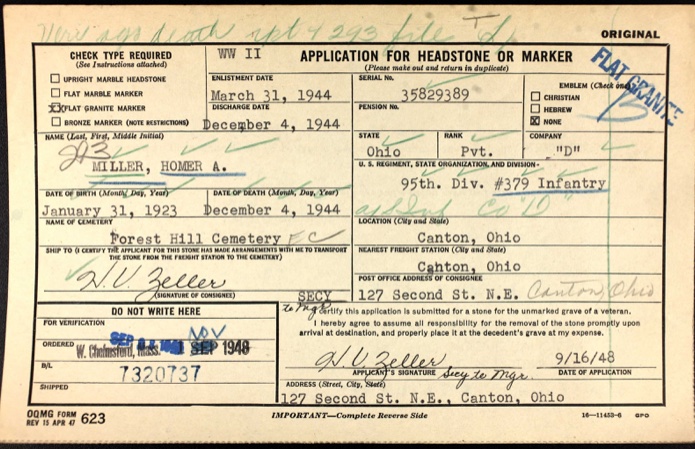 ORIGINAL
CHECK TYPE REQUIRED
(See Instructions attached)
UPRIGHT MARBLE HEADSTONE
FLAT MARBLE MARKER
XX FLAT GRANITE MARKER
BRONZE MARKER (NOTE RESTRICTIONS)
WW II
APPLICATION FOR HEADSTONE OR MARKER
(Please make out and return in duplicate)
ENLISTMENT DATE
March 31, 1944
DISCHARGE DATE
December 4, 1944
SERIAL No.
35829389
PENSION No.
EMBLEM (Check one)
CHRISTIAN
HEBREW
X NONE
FLAT GRANITE
NAME (Last, First, Middle Initial)
MILLER, HOMER A.
STATE
Ohio
RANK
Pvt.
COMPANY
"D"
U. S. REGIMENT, STATE ORGANIZATION, AND DIVISION
95th. Div. #379 Infantry
DATE OF BIRTH (Month, Day, Year)
January 31, 1923
DATE OF DEATH (Month, Day, Year)
December 4, 1944
NAME OF CEMETERY
Forest Hill Cemetery
LOCATION (City and State)
Canton, Ohio
SHIP TO (I CERTIFY THE APPLICANT FOR THIS STONE HAS MADE ARRANGEMENTS WITH ME TO TRANSPORT
THE STONE FROM THE FREIGHT STATION TO THE CEMETERY)
H. V. Zeller
(SIGNATURE OF CONSIGNEE)
SECY
to Mgr
NEAREST FREIGHT STATION (City and State)
Canton, Ohio
POST OFFICE ADDRESS OF CONSIGNEE
127 Second St. N.E. Canton, Ohio
DO NOT WRITE HERE
FOR VERIFICATION
ORDERED
W. Chelmsford, Mass.
NOV
SEP 1948
B/L
7320737
SHIPPED
I certify this application is submitted for a stone for the unmarked grave of a veteran.
I hereby agree to assume all responsibility for the removal of the stone promptly upon
arrival at destination, and properly place it at the decedent's grave at my expense.
H. V. Zeller
9/16/48
APPLICANT'S SIGNATURE Secy to Mgr.
DATE OF APPLICATION
ADDRESS (Street, City, State)
127 Second St. N.E., Canton, Ohio
OQMG FORM
REV 15 APR 47 623
IMPORTANT—Complete Reverse Side
16—11453-6 GPO